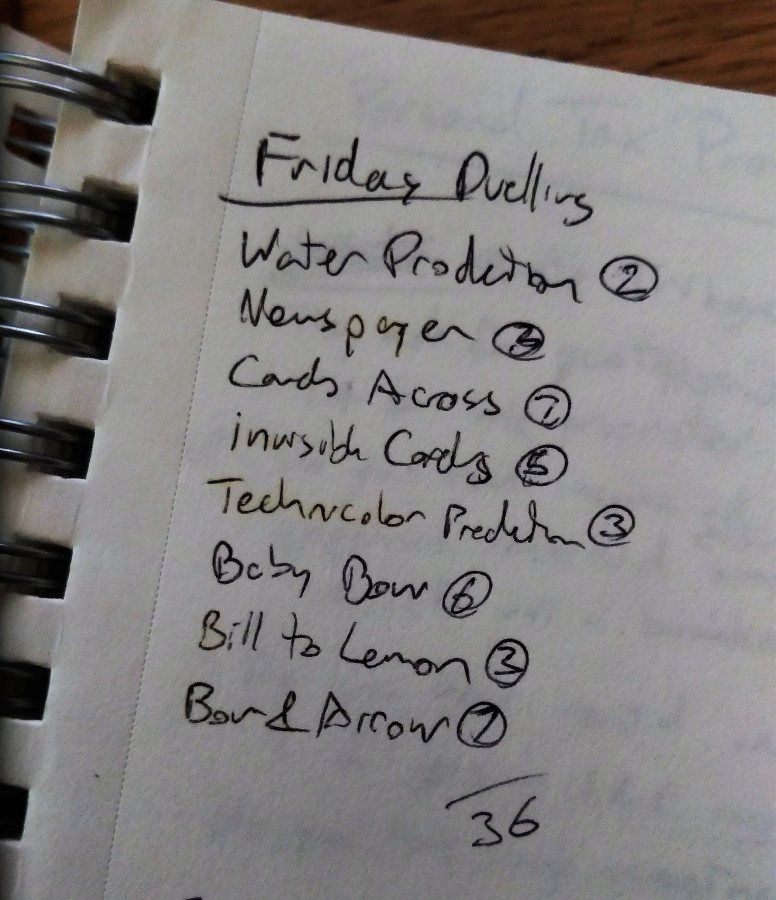 Friday Duelling
Water Prediction 2
Newspaper 3
Cards Across 7
invisible Cards 5
Technicolor Prediction 3
Baby Bow 6
Bill to Lemon 3
Bow & Arrow 7
36